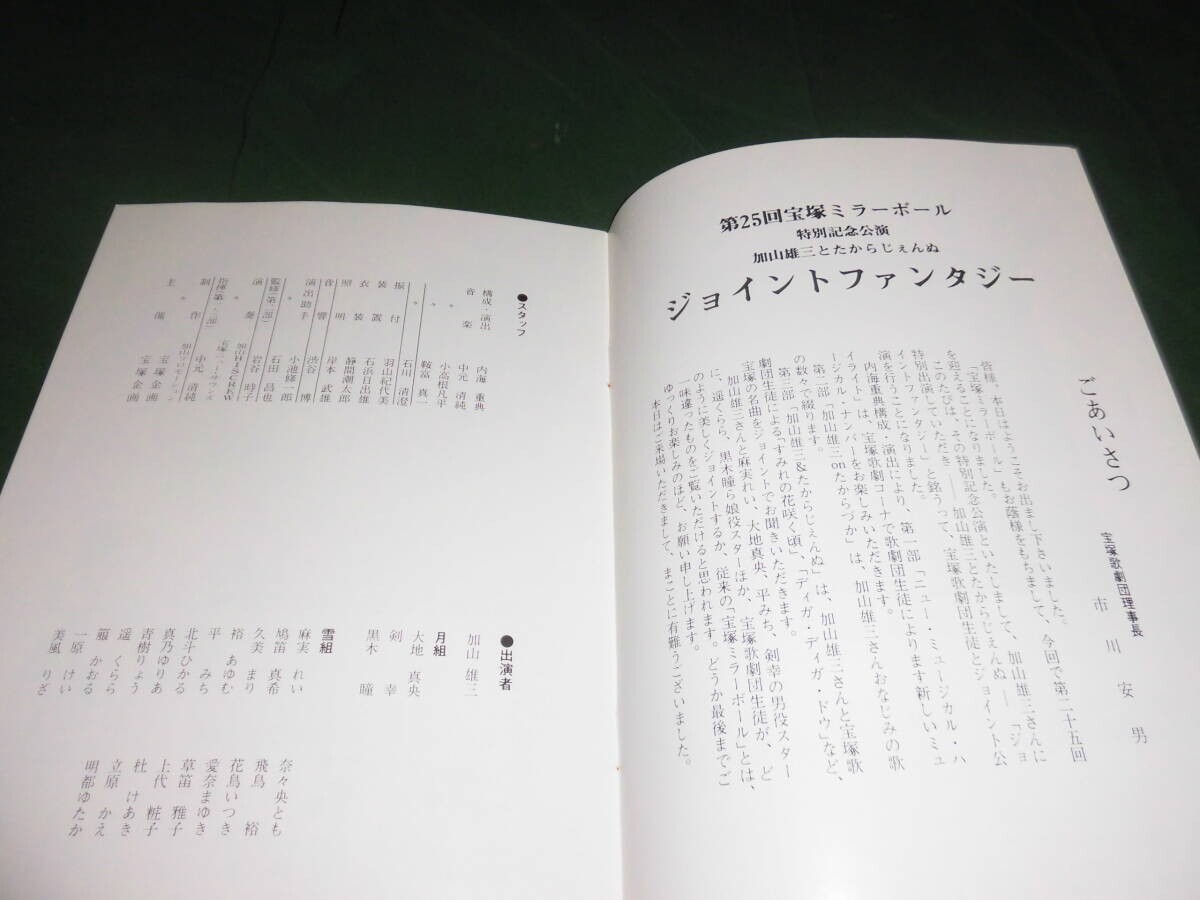 第25回宝塚ミラーボール
特別記念公演
加山雄三とたからじぇんぬ
ジョイントファンタジー
ごあいさつ
宝塚歌劇団理事長
市川安男
皆様、本日はようこそお出まし下さいました。
「宝塚ミラーボール」もお蔭様をもちまして、今回で第二十五回
を迎えることになりました。
このたびは、その特別記念公演といたしまして、加山雄三さんに
特別出演していただき――加山雄三とたからじぇんぬ――「ジョ
イントファンタジー」と銘うって、宝塚歌劇団生徒とジョイント公
演を行うことになりました。
内海重典構成・演出により、第一部「ニュー・ミュージカル・ハ
イライト」は、宝塚歌劇コーナで歌劇団生徒によります新しいミュ
ージカル・ナンバーをお楽しみいただきます。
第二部「加山雄三onたからづか」は、加山雄三さんおなじみの歌
の数々で綴ります。
第三部「加山雄三&たからじぇんぬ」は、加山雄三さんと宝塚歌
劇団生徒による「すみれの花咲く頃」、「ディガ・ディガ・ドウ」など、
宝塚の名曲をジョイントでお聞きいただきます。
加山雄三さんと麻実れい、大地真央、平みち、剣幸の男役スター
に、遥くらら、黒木瞳ら娘役スターほか、宝塚歌劇団生徒が、ど
のように美しくジョイントするか、従来の「宝塚ミラーボール」とは、
一味違ったものをご覧いただけると思われます。どうか最後までご
ゆっくりお楽しみのほど、お願い申し上げます。
本日はご来場いただきまして、まことに有難うございました。
●スタッフ
構成・演出 内海重典
音楽 中元清純
〃 小高根凡平
〃 鞍富真一
振付 石川清澄
〃 羽山紀代美
装置 石浜日出雄
衣装 静間潮太郎
照明
音響 岸本武雄
演出助手 渋谷博
〃 小池修一郎
監修(第二部) 石田昌也
演奏 岩谷時子
〃 加山HI-SCREW
宝塚
指揮(第一、三部) 中元清純
制作 加山プロモーション
〃 宝塚企画
主催 宝塚企画
●出演者
加山雄三
月組
大地真央
剣幸
黒木瞳
雪組
麻実れい
鳩笛真希
久美まり
裕あゆむ
平みち
北斗ひかる
真乃ゆりあ
青樹りょう
遥くらら
朧かおる
一原けい
美風りざ
奈々央とも
飛鳥裕
花鳥いつき
愛奈まゆき
草笛雅子
上代粧子
杜けあき
立原かえ
明都ゆたか